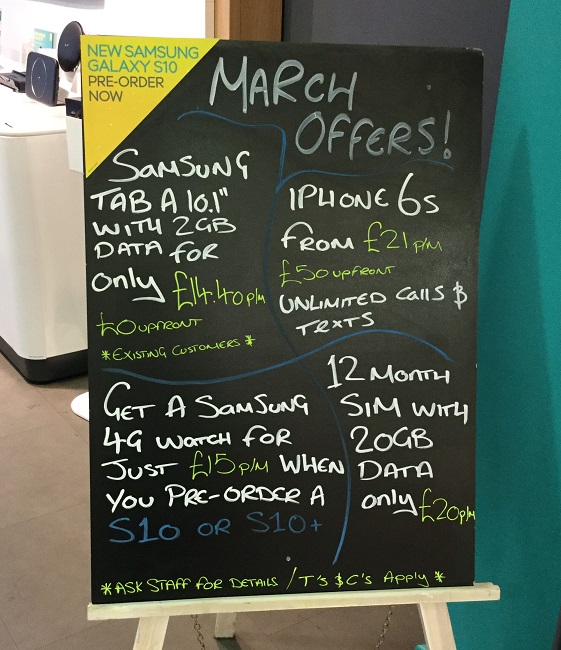 NEW SAMSUNG
GALAXY S10
PRE-ORDER
NOW
MARCH
OFFERS!
SAMSUNG
TAB A 10.1"
WITH 2GB
DATA FOR
only £14.40p/m
£0 UPFRONT
*EXISTING CUSTOMERS*
IPHONE 6s
FROM £21 p/m
£50 UPFRONT
UNLIMITED Calls &
TEXTS
GET A SAMSUNG
4G WATCH FOR
JUST £15 p/m WHEN
YOU PRE-ORDER A
S10 OR S10+
12 MONTH
SIM WITH
20GB
DATA
only £20p/m
*ASK STAFF FOR DETAILS / T's & C's Apply *